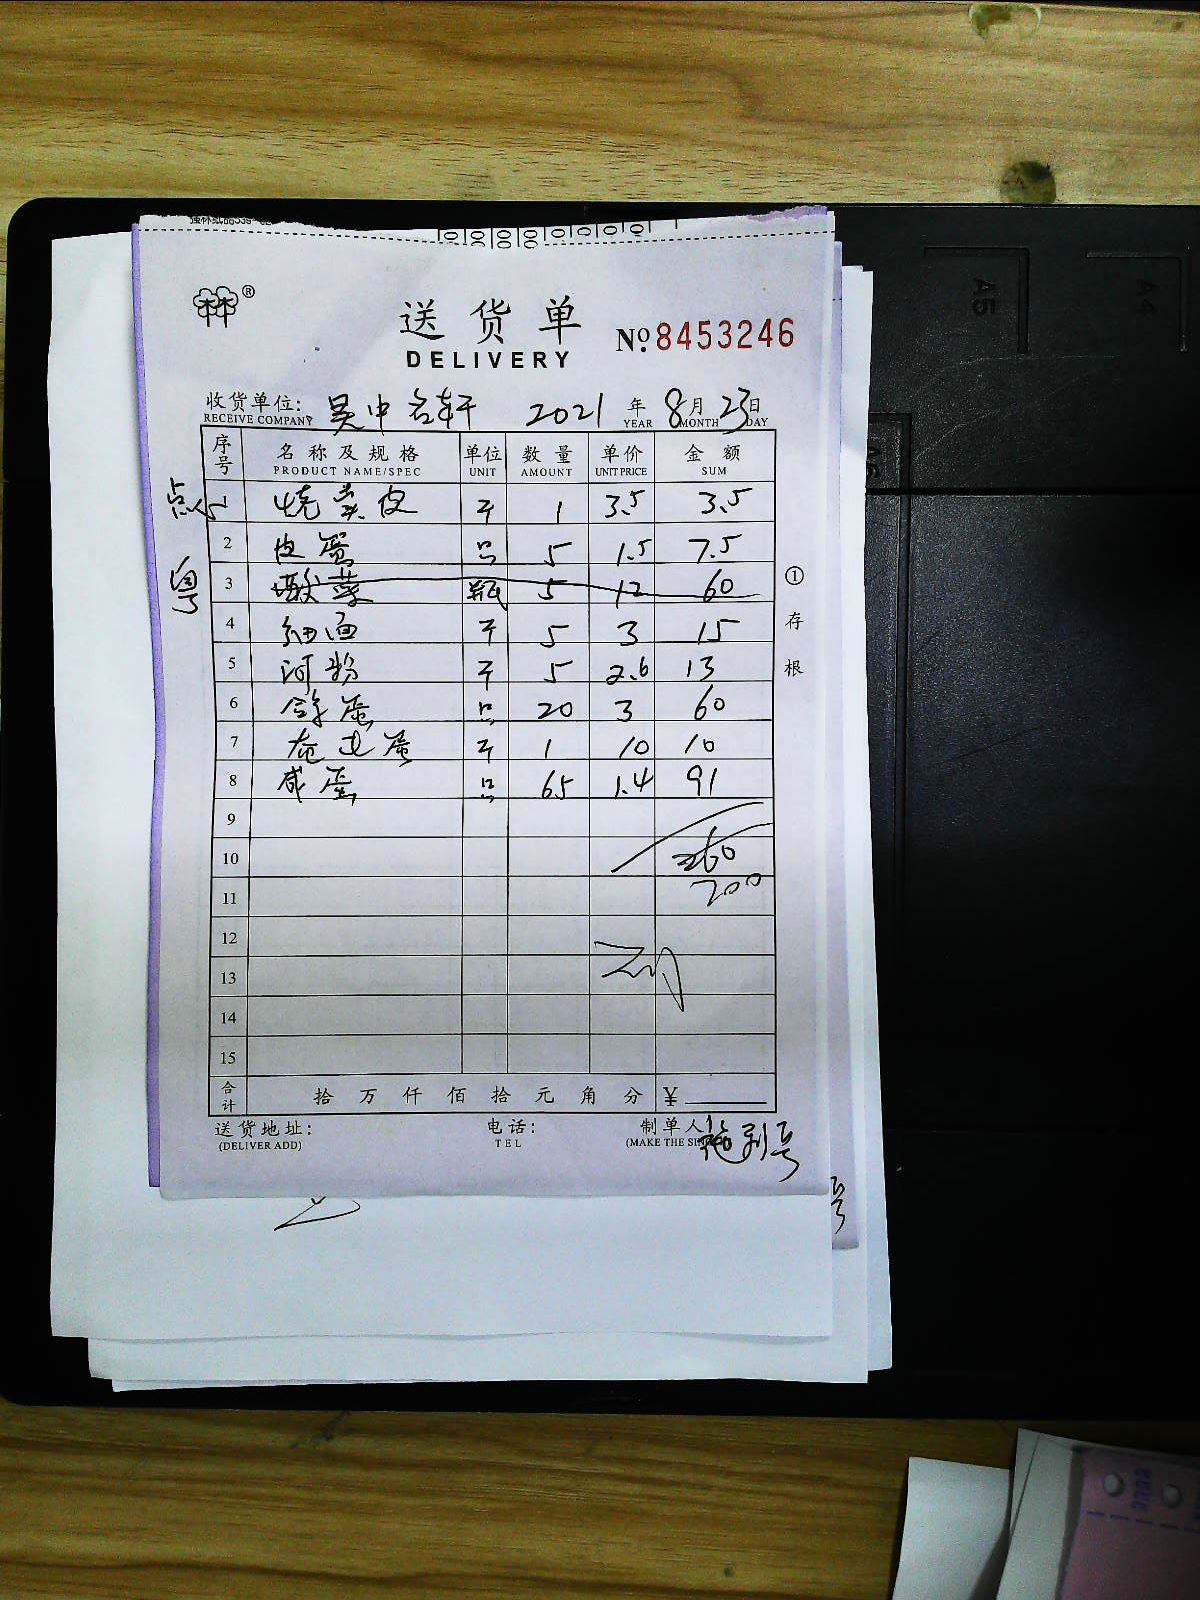 ®
送货单
DELIVERY
Nº 8453246
收货单位: 吴中名轩 2021 年 8 月 23 日
RECEIVE COMPANY YEAR MONTH DAY
序号 名称及规格 单位 数量 单价 金额
PRODUCT NAME/SPEC UNIT AMOUNT UNIT PRICE SUM
点心
1 烧卖皮 斤 1 3.5 3.5
2 皮蛋 只 5 1.5 7.5
粤
3 酸菜 瓶 5 12 60
4 细面 斤 5 3 15
5 河粉 斤 5 2.6 13
6 鸽蛋 只 20 3 60
7 斤 1 10 10
8 咸蛋 只 65 1.4 91
9
10 260
11 200
12
13
14
15
合计 拾 万 仟 佰 拾 元 角 分 ¥
①存根
送货地址: 电话: 制单人
(DELIVER ADD) TEL (MAKE THE
A5
A4